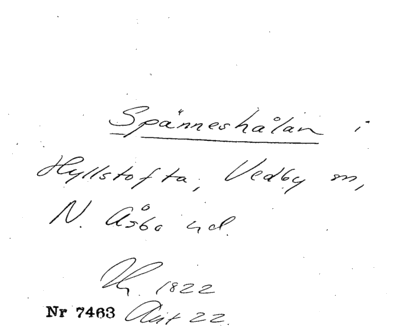 Spänneshålan i
Hyllstofta, Vedby sn,
N. Åsbo hd.
1822
Nr 7463 Akt 22.